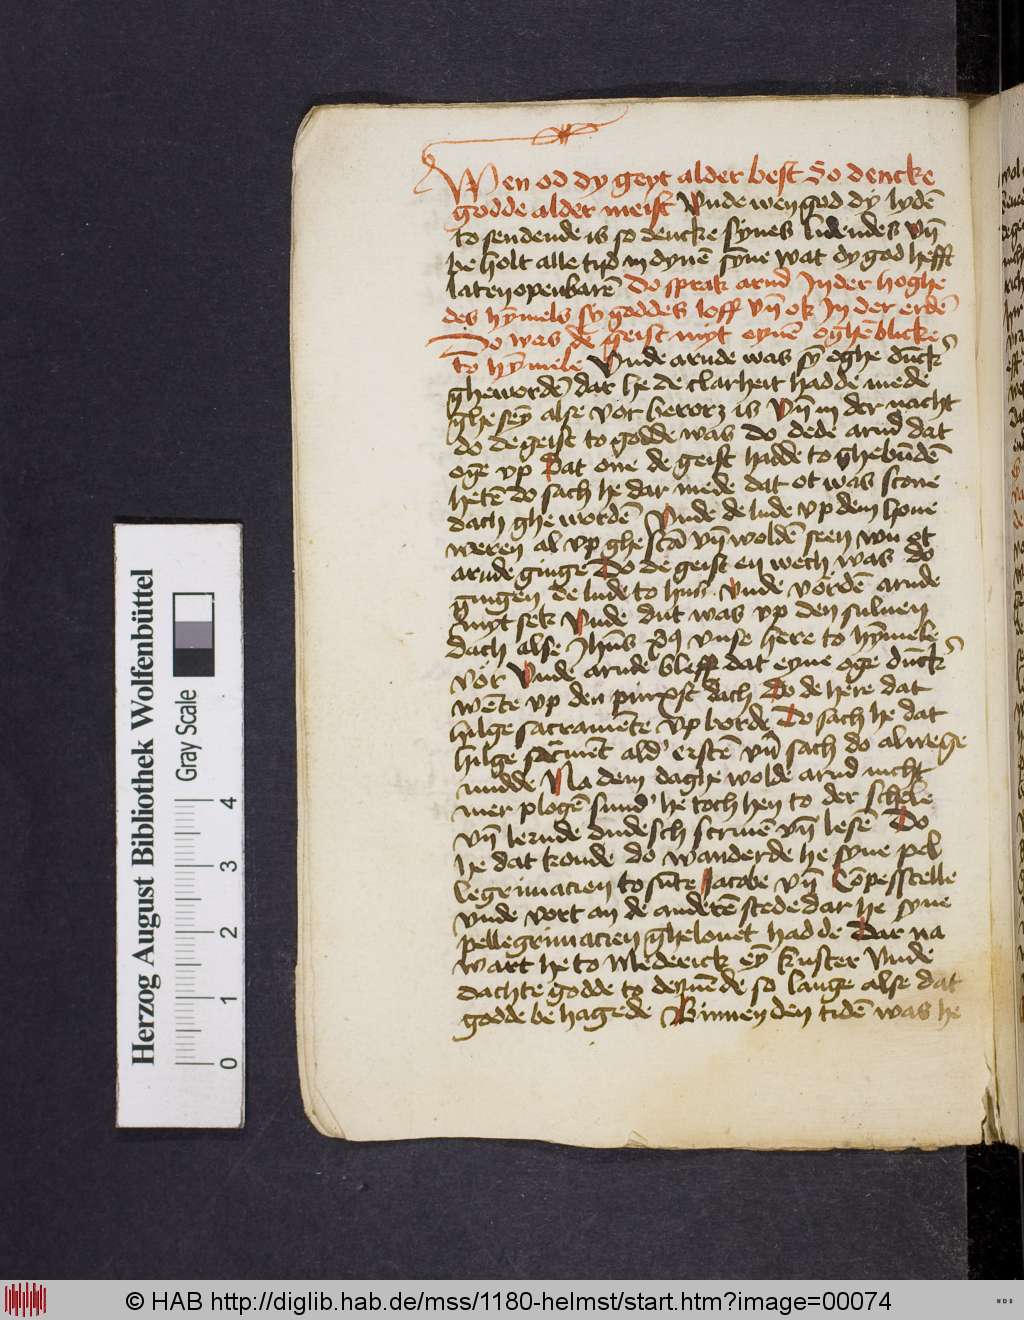 Wen od dy geyt alder best So dencke
godde alder meist Vnde wen god dy lydē
to sendende is so dencke synes lidendes vn̄
be holt alle tijd in dynē syne wat dy god hefft
laten openbarē Do sprak arnd In der hoghe
des hȳmels sy goddes loff vn̄ ok In der erdē
Do was de geist myt eynē oghēblicke
to hȳmele Vnde arnde was sȳ oghe dūck
ghewordē dar he de clarheit hadde mede
ghe seȳ alse vor berorz is Vn̄ in der nacht
do de geist to godde was Do dede arnd dat
oge vp Dat one de geist hadde to ghebūdē
hetē do sach he dar mede dat ot was scone
dach ghe wordē Vnde de lude vp dem houe
weren al vp ghe stā vn̄ woldē seen wu ot
arnde ginge Do de geist en wech was do
gingen de lude to hus Vnde vordē arnde
myt sek Vnde dut was vp den suluen
dach alse Jhūs xp̄s vnse here to hȳmele
vor Vnde arnde bleff dat eyne oge dūck
wēte vp den pinxst dach Do de here dat
hilge sacramēte vp borde Do sach he dat
hilge sacmēt ald erstē vn̄ sach do alwege
mydde Na dem daghe wolde arnd nicht
mer plogē sund he toch hen to der schole
vn̄ lernde dudesch scriuē vn̄ lesē Do
he dat konde do wanderde he syne pel
legrimacien to sūte Jacobe vn̄ Cōpesstelle
vnde vort an de anderē stede dar he syne
pellegrimacien ghelouet hadde Dar na
wart he to Mederick eȳ kuster Vnde
dachte godde to deynēde so lange alse dat
godde be hagede Binnen den tidē was he
Herzog August Bibliothek Wolfenbüttel
Gray Scale
0 1 2 3 4
© HAB http://diglib.hab.de/mss/1180-helmst/start.htm?image=00074